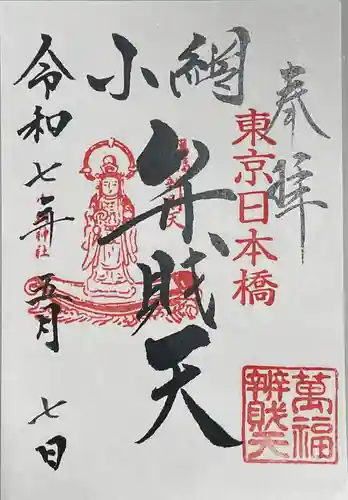 奉拝
東京日本橋
小網
弁財天
令和七年五月七日
萬福
辨財天